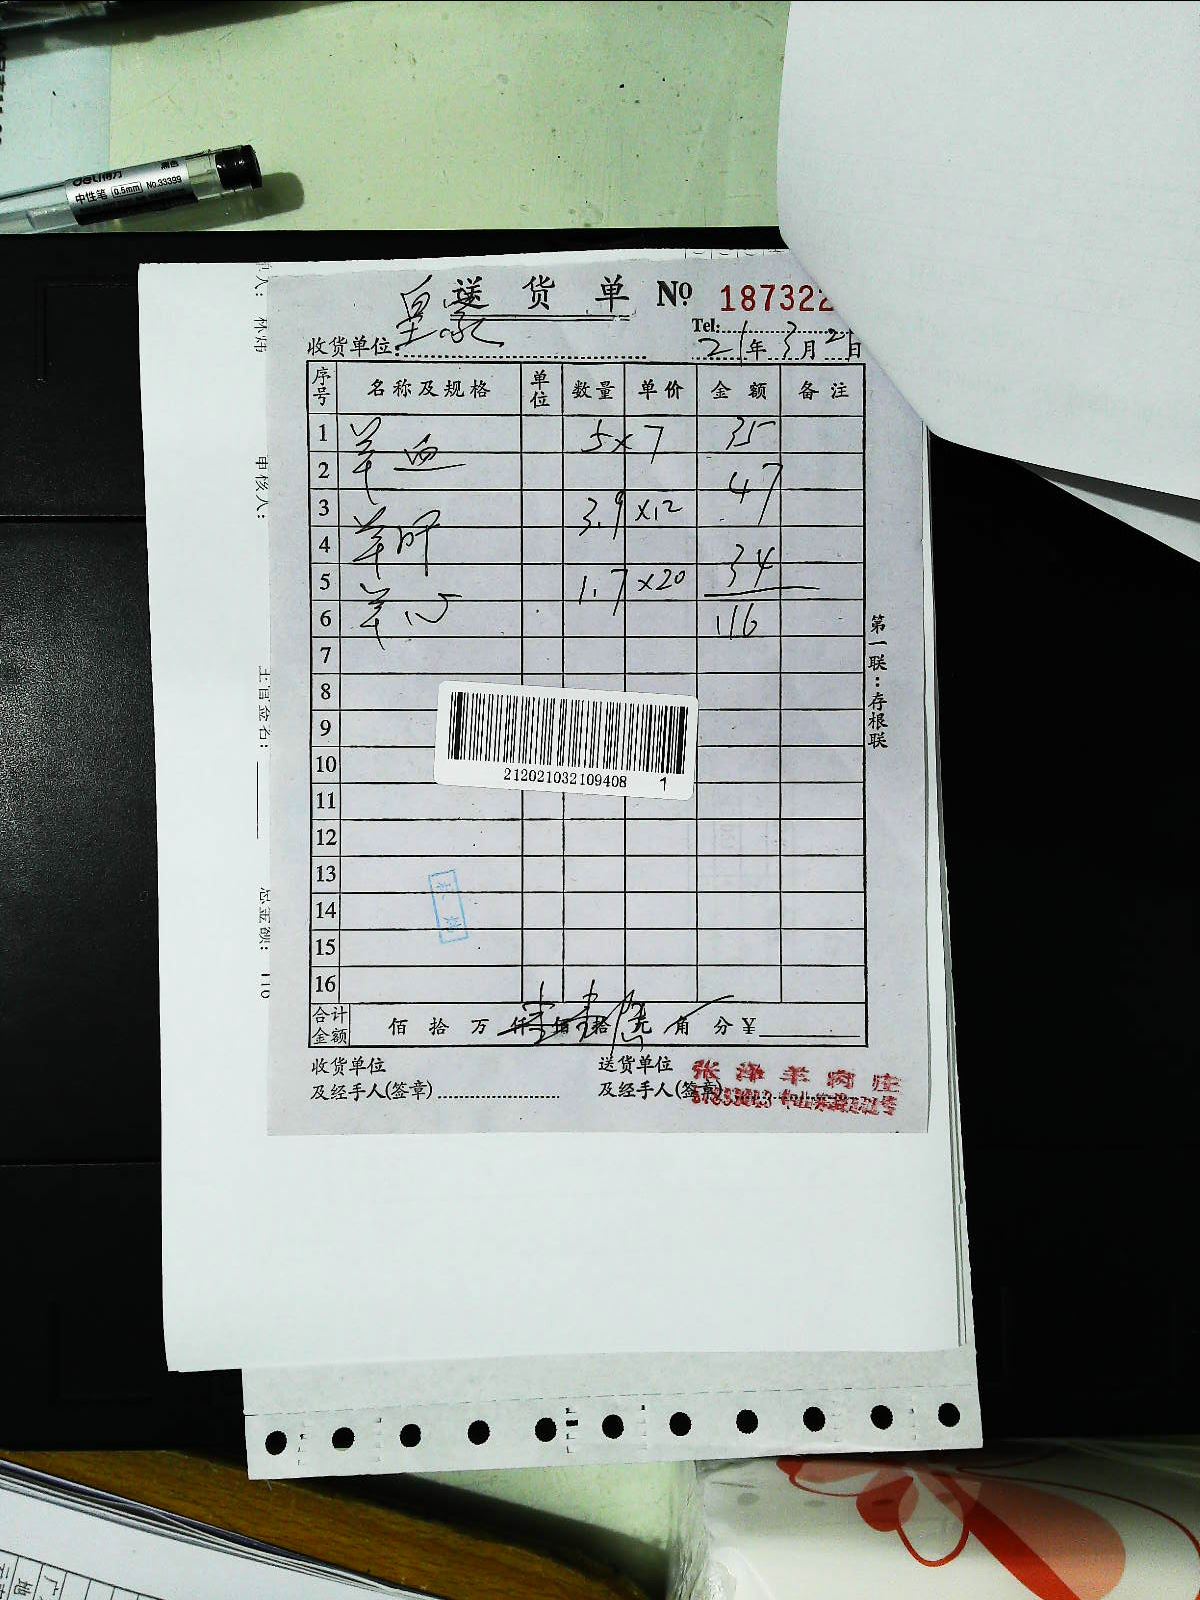 deli得力
中性笔 0.5mm No.33399
送货单 No 187322
Tel:
收货单位: 皇家 21年3月21日
序号 名称及规格 单位 数量 单价 金额 备注
1 羊血 5×7 35
2 47
3 羊肝 3.9×12
4
5 羊心 1.7×20 34
6 116
7
8
9
10
11
12
13
14
15
16
212021032109408 1
合计金额 佰拾万仟佰拾元角分¥
收货单位 送货单位
及经手人(签章) 及经手人(签章)
张泽羊肉庄
第一联:存根联
林炜
审核人:
主管签名:
总金额: 116